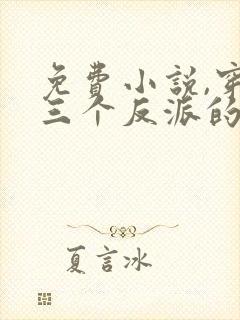 免费小说,穿
三个反派的
夏言冰